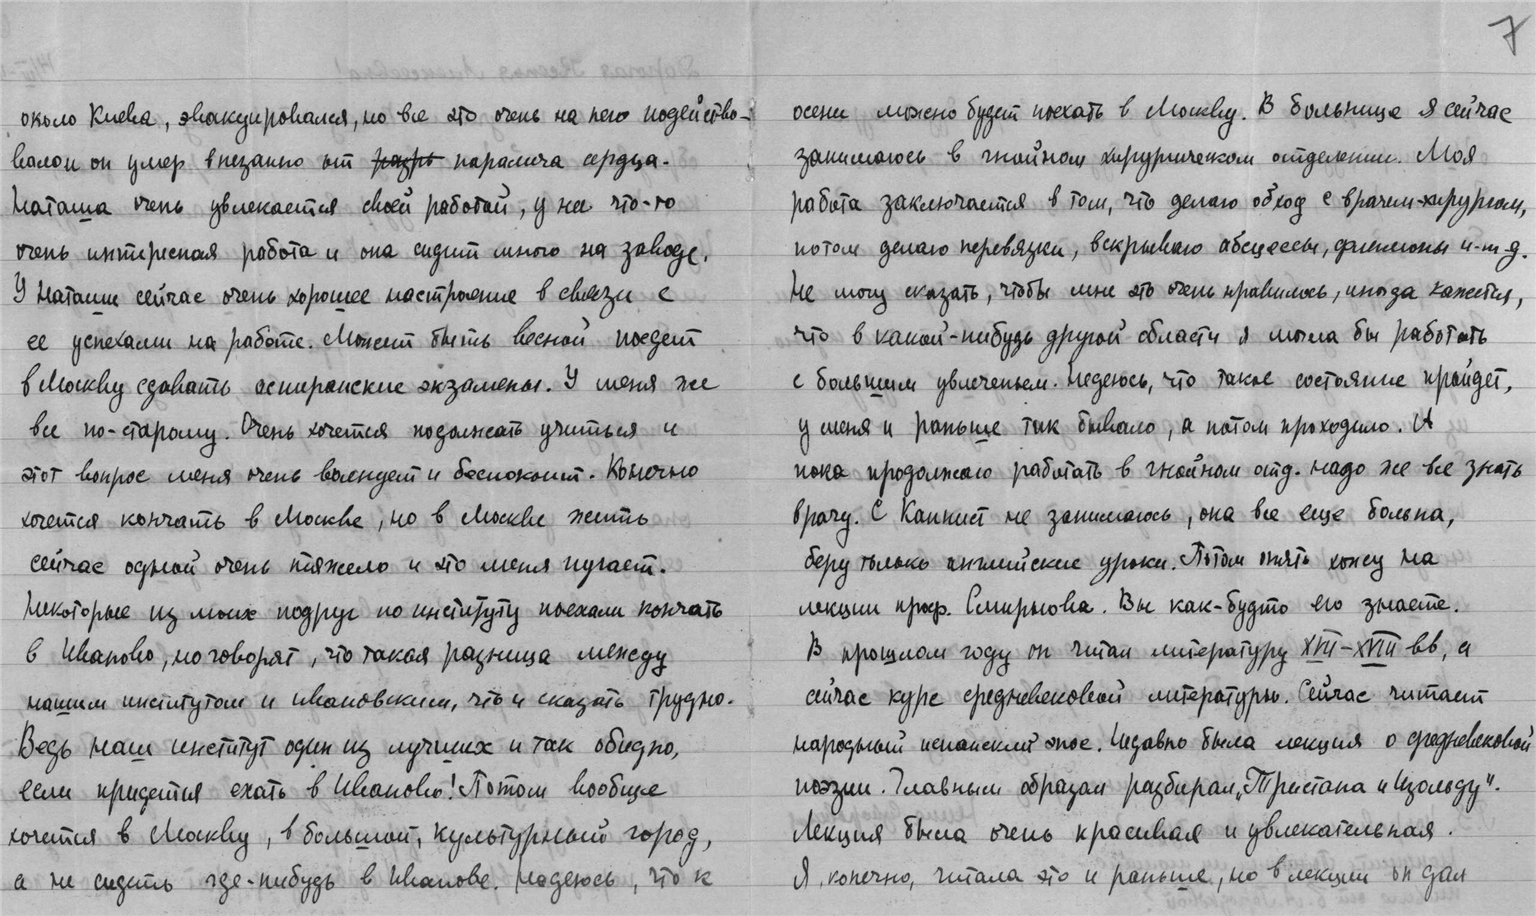 около Киева, эвакуировался, но все это очень на него подейство-
вало и он умер внезапно от разры паралича сердца.
Наташа очень увлекается своей работой, у нее что-то
очень интересная работа и она сидит много на заводе.
У Наташи сейчас очень хорошее настроение в связи с
ее успехами на работе. Может быть весной поедет
в Москву сдавать аспиранские экзамены. У меня же
все по-старому. Очень хочется подолжать учиться и
этот вопрос меня очень волнует и беспокоит. Конечно
хочется кончать в Москве, но в Москве жить
сейчас одной очень тяжело и это меня пугает.
Некоторые из моих подруг по институту поехали кончать
в Иваново, но говорят, что такая разница между
нашим институтом и ивановским, что и сказать трудно.
Ведь наш институт один из лучших и так обидно,
если придется ехать в Иваново! Потом вообще
хочется в Москву, в большой, культурный город,
а не сидеть где-нибудь в Иванове. Надеюсь, что к
7
осени можно будет поехать в Москву. В больнице я сейчас
занимаюсь в гнойном хирургическом отделении. Моя
работа заключается в том, что делаю обход с врачем-хирургом,
потом делаю перевязки, вскрываю абсцессы, флегмоны и-т-д.
Не могу сказать, чтобы мне это очень нравилось, иногда кажется,
что в какой-нибудь другой области я могла бы работать
с большим увлеченьем. Надеюсь, что такое состояние пройдет,
у меня и раньше так бывало, а потом проходило. А
пока продолжаю работать в гнойном отд. надо же все знать
врачу. С Капнист не занимаюсь, она все еще больна,
беру только английские уроки. Потом опять хожу на
лекции проф. Смирнова. Вы как-будто его знаете.
В прошлом году он читал литературу XVII-XVIII вв, а
сейчас курс средневековой литературы. Сейчас читает
народный испанский эпос. Недавно была лекция о средневековой
поэзии. Главным образом разбирал „Тристана и Изольду".
Лекция была очень красивая и увлекательная.
Я, конечно, читала это и раньше, но в лекции он дал